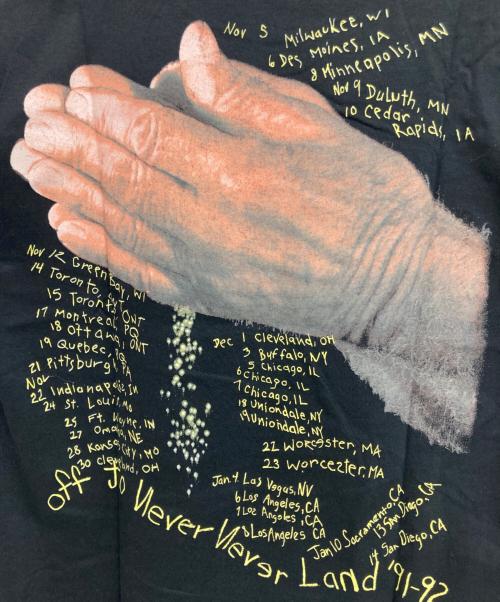 Nov 5 Milwaukee, WI
6 Des Moines, IA
8 Minneapolis, MN
Nov 9 Duluth, MN
10 Cedar
Rapids, IA
Nov 12 Green Bay, WI
14 Toronto, ONT
15 Toronto, ONT
17 Montreal, PQ
18 Ottawa, ONT
19 Quebec, PQ
21 Pittsburgh, PA
Nov
22 Indianapolis, In
24 St. Louis, Mo
25 Ft. Wayne, IN
27 Omaha, NE
28 Kansas City, MO
30 Cleveland, OH
Dec 1 Cleveland, OH
3 Buffalo, NY
5 Chicago, IL
6 Chicago, IL
7 Chicago, IL
18 Uniondale, NY
19 Uniondale, NY
22 Worcester, MA
23 Worcezter, MA
Jan. 4 Las Vegas, NV
6 Los Angeles, CA
7 Los Angeles, CA
8 Los Angeles CA
Jan 10 Sacramento, CA
13 San Diego, CA
14 San Diego, CA
off To Never Never Land '91-92